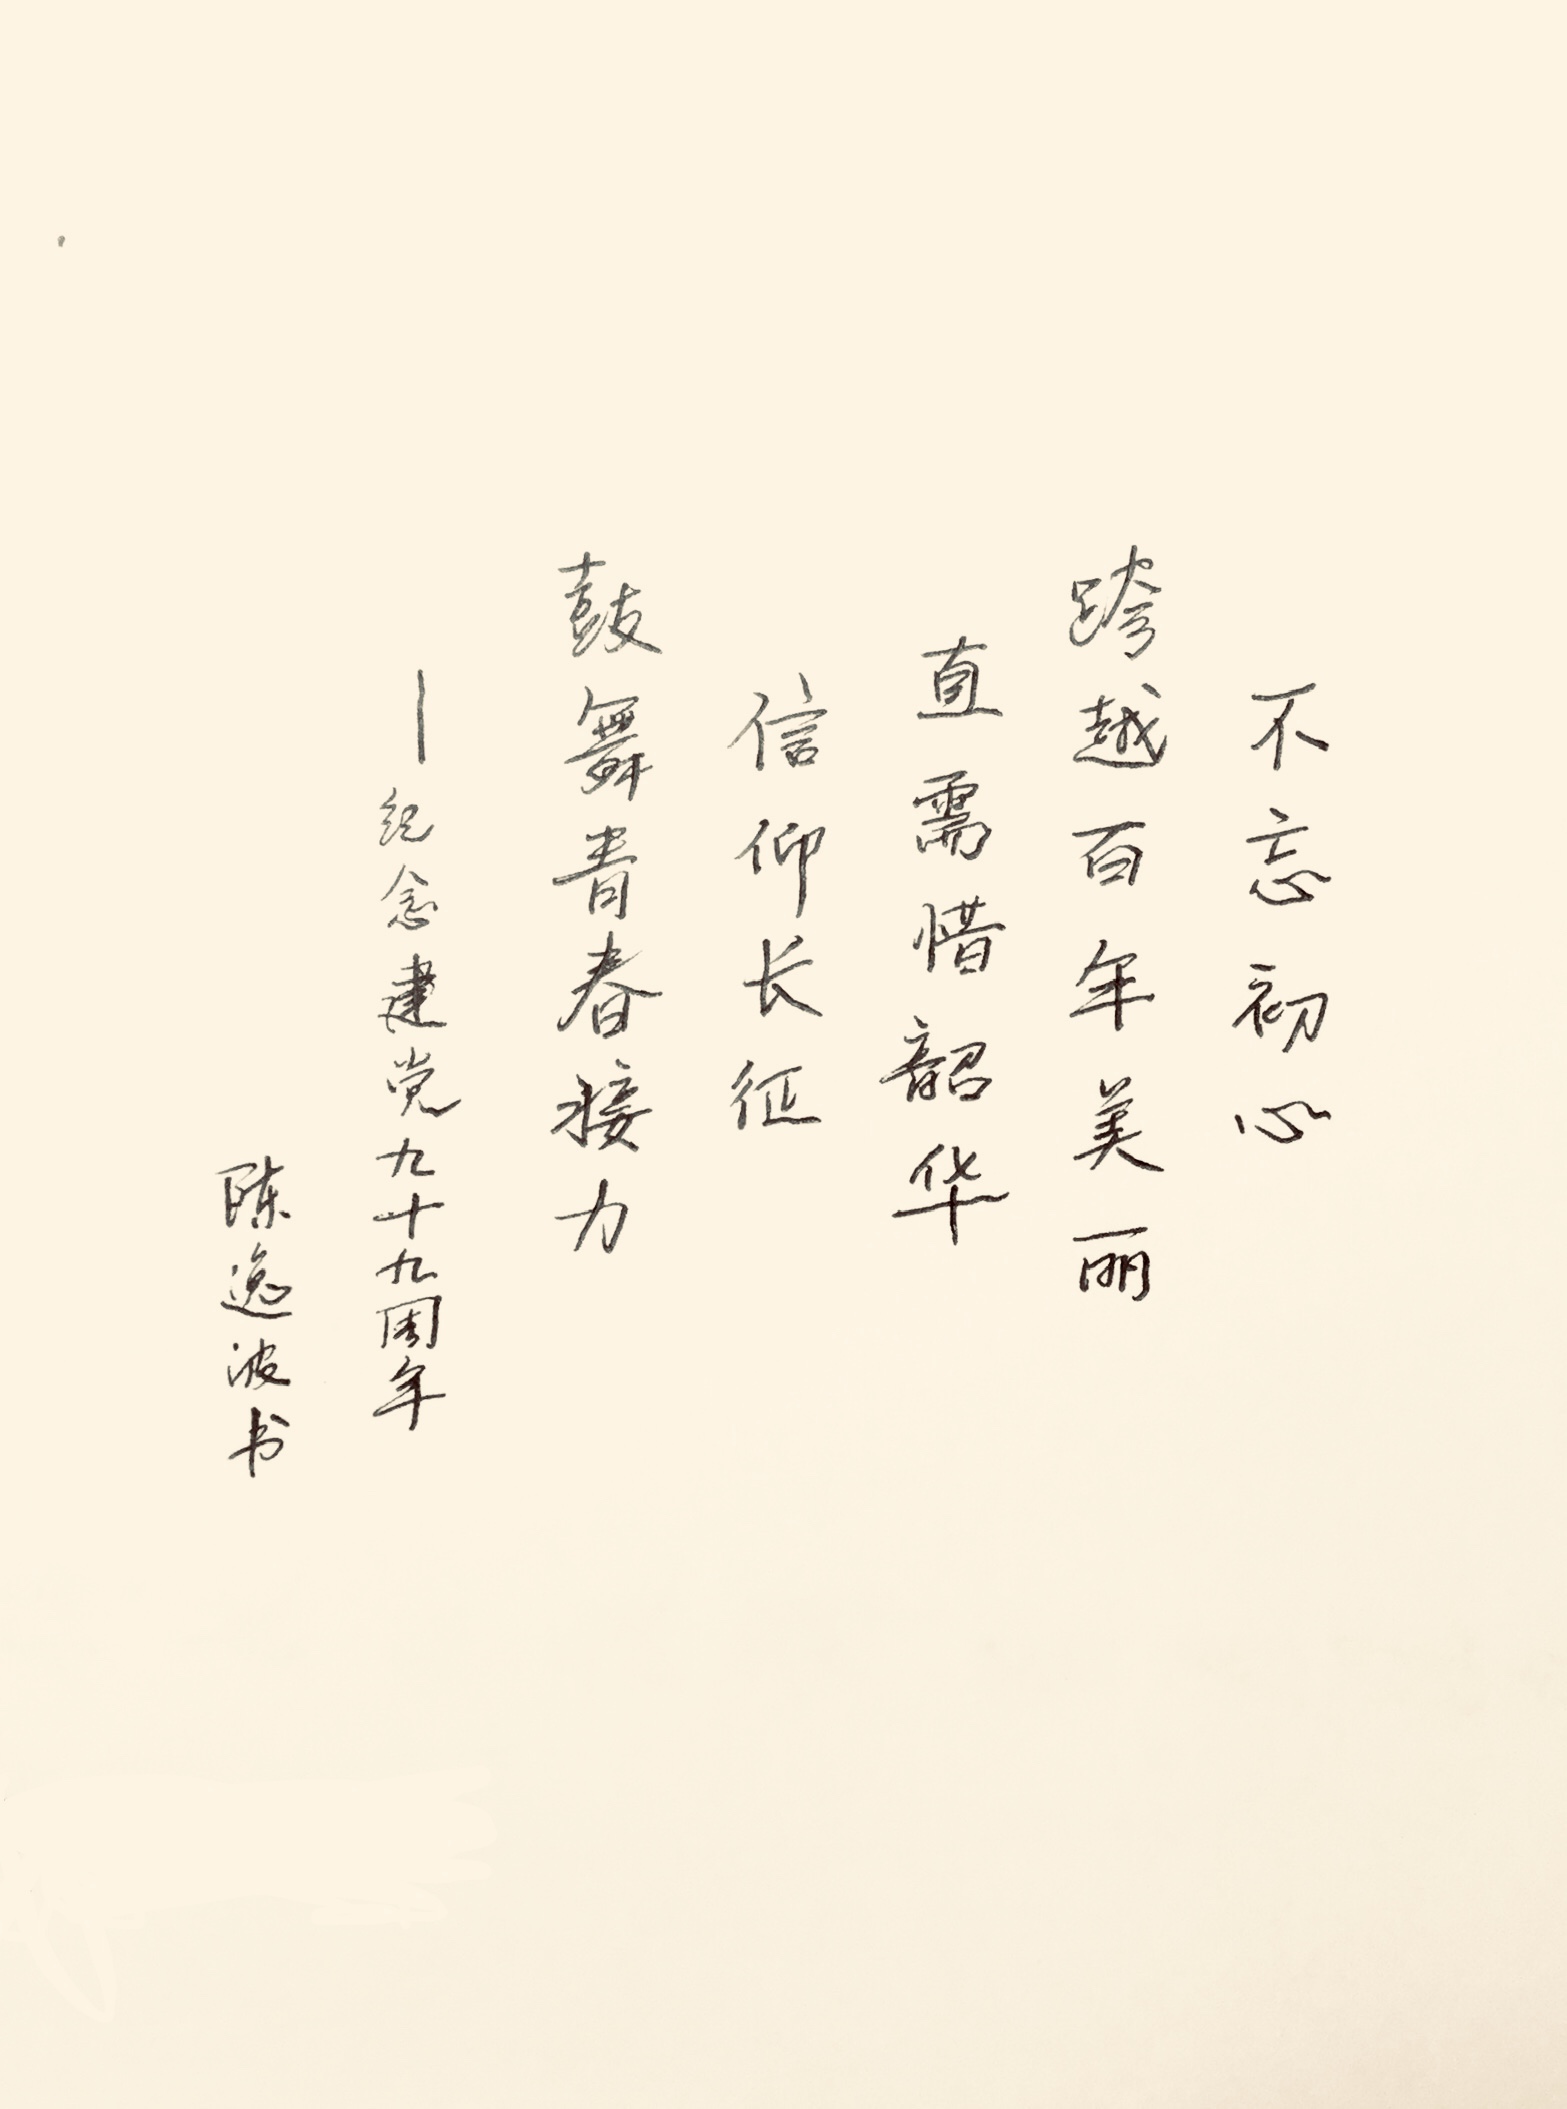 不忘初心
跨越百年美丽
直需惜韶华
信仰长征
鼓舞青春接力
—纪念建党九十九周年
陈逸波书